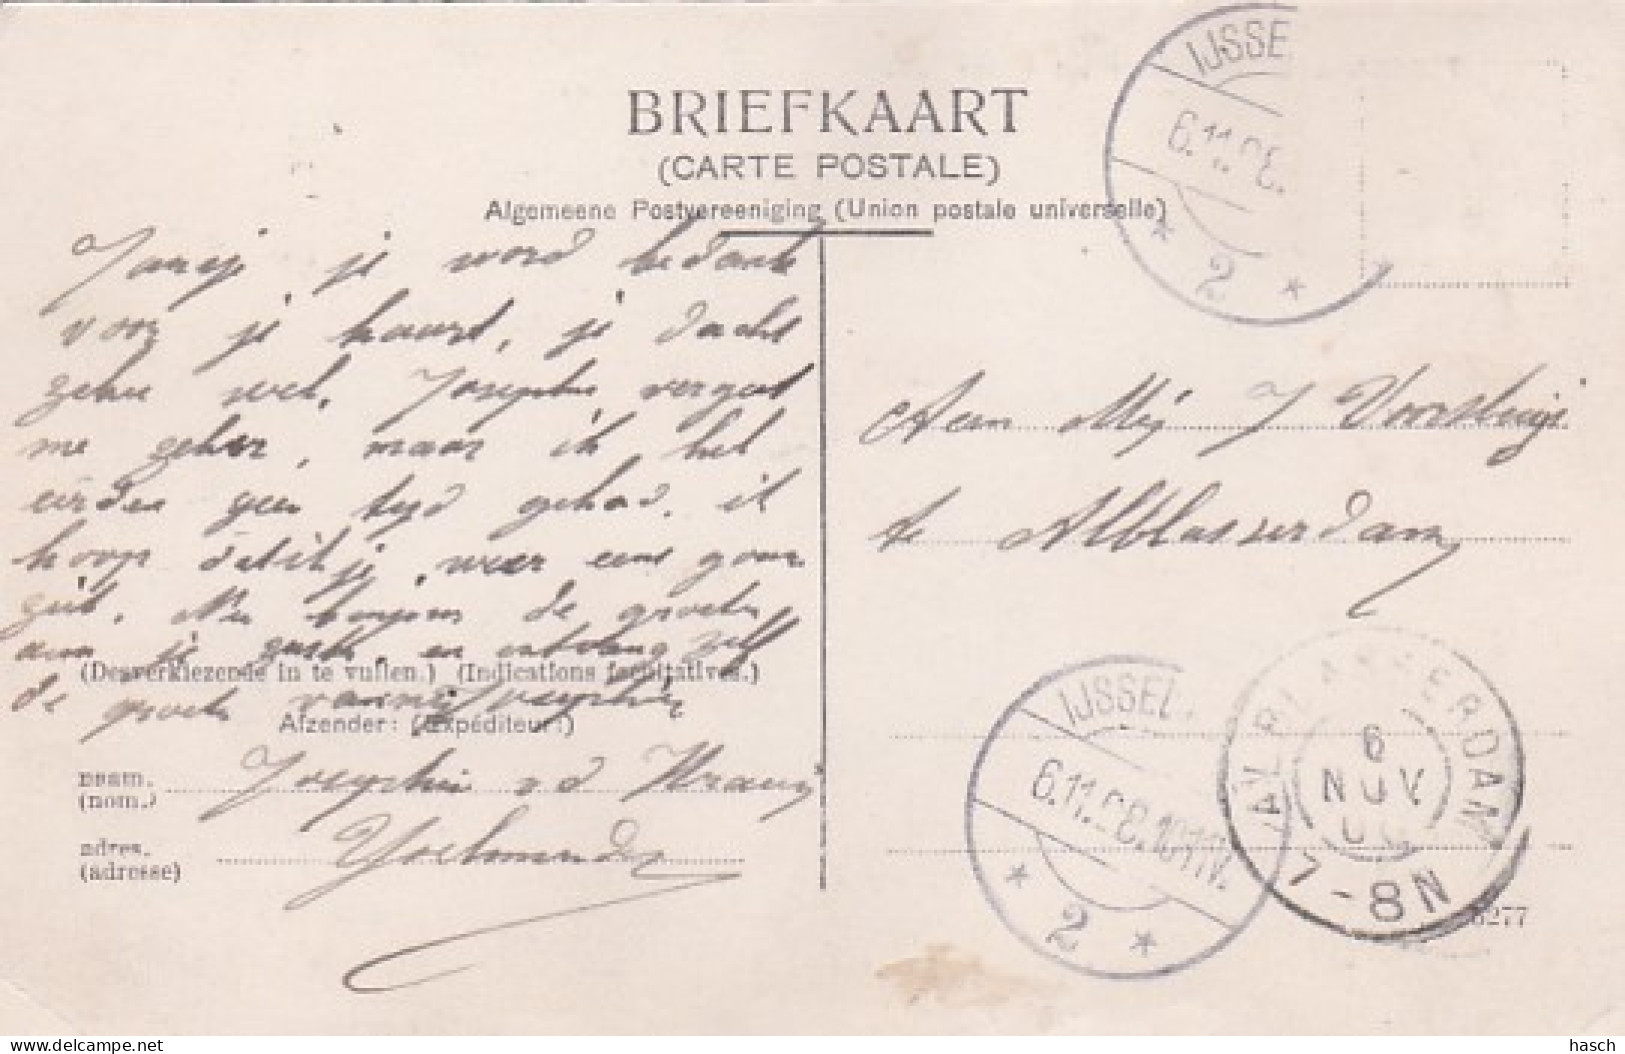 IJSSEL
6.11.08.
2
BRIEFKAART
(CARTE POSTALE)
Algemeene Postvereeniging (Union postale universelle)
je word bedankt
voor je kaart, je dacht
zeker wel, Josephie vergeet
me zeker, maar ik heb
eerder geen tijd gehad. ik
hoop dat je weer eens gauw
de groeten
aan je zuster en ontvang zelf
de groeten van Josephie
(Desverkiezende in te vullen.) (Indications facultatives.)
Afzender: (Expéditeur:)
naam. (nom.) Josephie v d
adres. (adresse) IJselmonde
Aan Mej J Voorsluijs
te Alblasserdam
IJSSEL
6.11.08.
2
ALBLASSERDAM
6
NOV
7-8N
6277
hasch